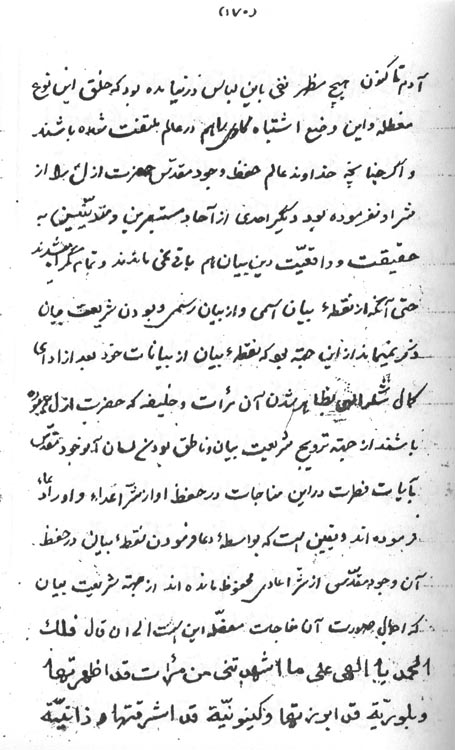 (۱۷۰)
آدم تا کنون هیچ مظهر نفی باین لباس در دنیا نیامده بود که خلق این نوع
مغلطه و این وضع اشتباه کاری را هم در عالم ملتفت شده باشند
و اگر چنانچه خداوند عالم حفظ وجود مقدّس حضرت ازل را از
شر او نفرموده بود دیگر احدی از آحاد مستبصرین و متدیّنین به
حقیقت و واقعیّت دین بیان هم باقی نمی ماندند و تمام گمراه میشدند
حتی آنکه از نقطهٔ بیان اسمی و از بیان رسمی و بودن شریعت بیان
ذکری نمیماند از این جهة بود که نقطهٔ بیان از بیانات خود بعد از ادای
کمال شکر الهی بظاهر شدن آن مرآت و خلیفه که حضرت ازل
باشند از جهة ترویج شریعت بیان و ناطق بودن لسان آن وجود مقدّس
بآیات فطرت در این مناجات در حفظ او از شرّ اعداء و اوراد
فرموده اند و یقین است که بواسطهٔ دعا فرمودن نقطهٔ بیان در حفظ
آن وجود مقدّس از شرّ اعادی محفوظ مانده اند از جهة شریعت بیان
که اجمال صورت آن مناجات مفصّله این است الی ان قال فلك
الحمد یا الهی علی ما اشهدتنی من مرآت قد اظهرتها
و بلوریّة قد ابرزتها و کینونیّة قد اشرقتها و ذاتیّة